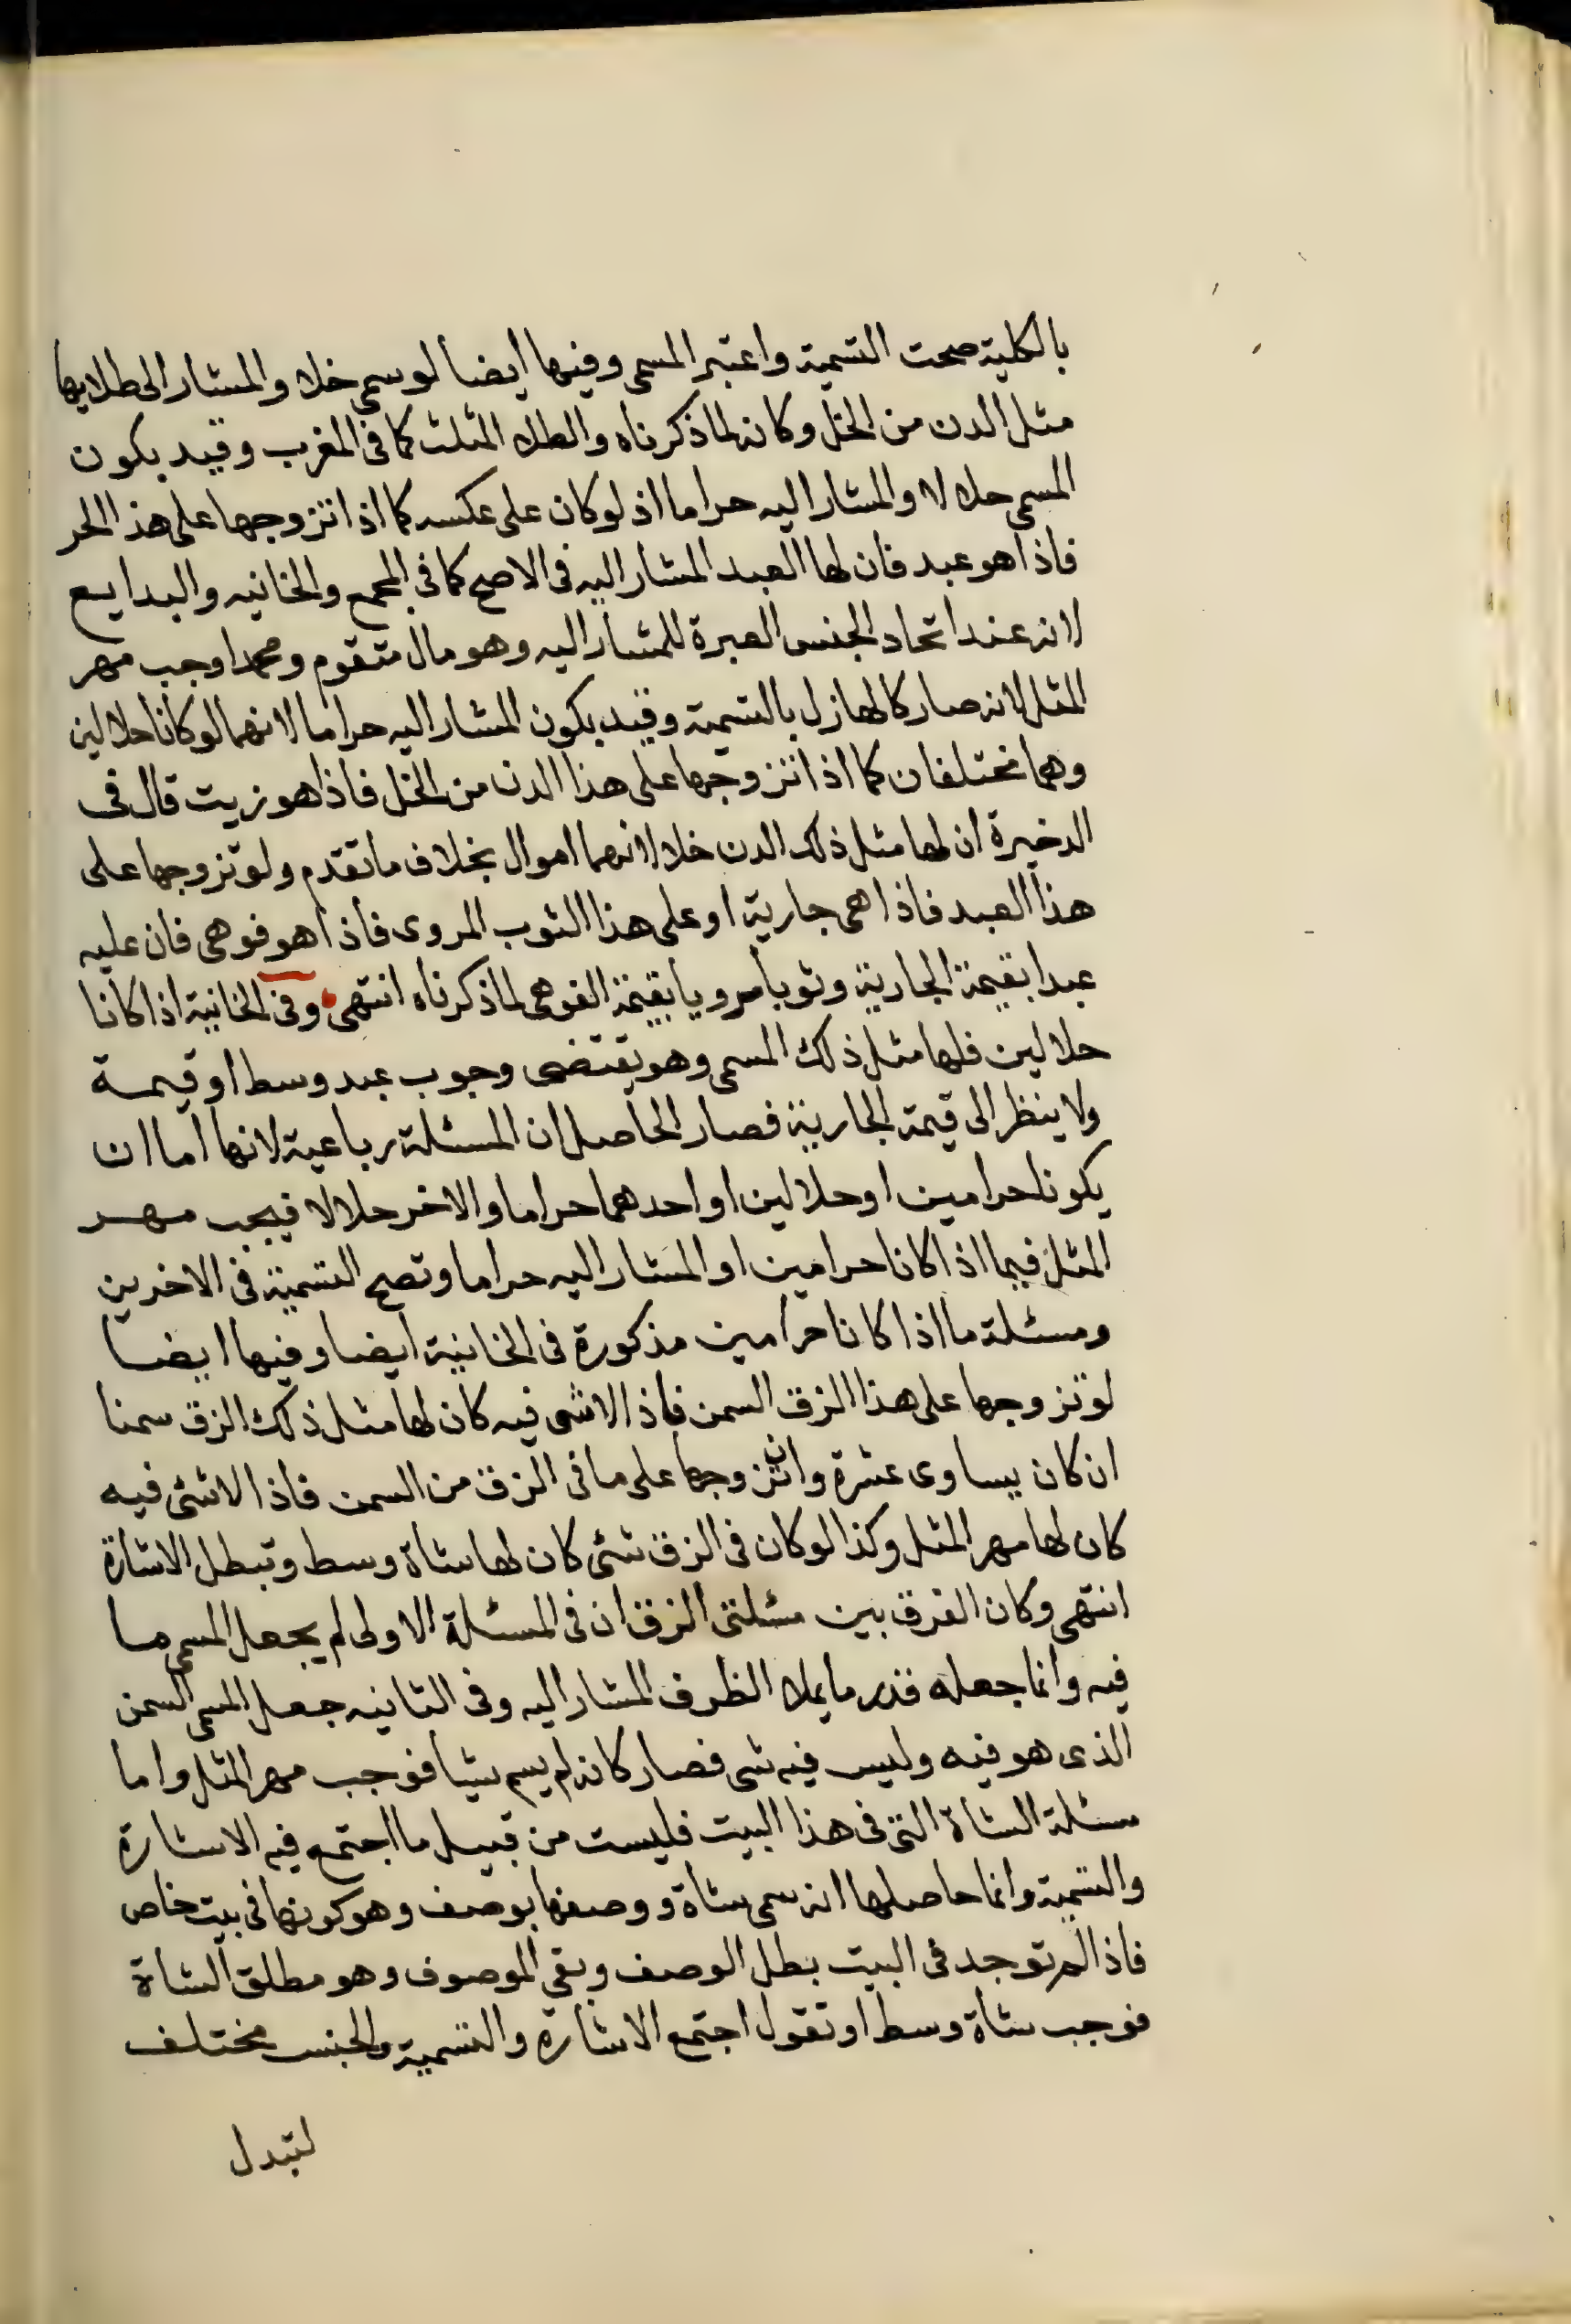 بالكلية صحت التسمية واعتبر المسمى وفيها أيضا لو سمى خلا والمشار الى طلا يها
مثل الدن من الخل وكانه لما ذكرناه والطلا المثلث كما فى المغرب وقيد بكون
المسمى حلالا والمشار اليه حراما اذ لو كان على عكسه كما اذا تزوجها على هذا الحر
فاذا هو عبد فان لها العبد المشار اليه فى الاصح كما فى المجمع والخانيه والبدايع
لانه عند اتحاد الجنس العبرة للمشار اليه وهو مال متقوم ومحمد اوجب مهر
المثل لانه صار كالهازل بالتسمية وقيد بكون المشار اليه حراما لانهما لو كانا حلالين
وهما مختلفان كما اذا تزوجها على هذا الدن من الخل فاذا هو زيت قال فى
الدخيرة ان لها مثل ذلك الدن خلا لانهما اموال بخلاف ما تقدم ولو تزوجها على
هذا العبد فاذا هى جارية او على هذا الثوب المروى فاذا هو قوهى فان عليه
عبدا بقيمة الجارية وثوبا مرويا بقيمة القوهى لما ذكرناه انتهى وفى الخانية اذا كانا
حلالين فلها مثل ذلك المسمى وهو يقتضى وجوب عبد وسط او قيمة
ولا ينظر الى قيمة الجارية فصار الحاصل ان المسئلة رباعية لانها اما ان
يكونا حرامين او حلالين او احدهما حراما والاخر حلالا فيجب مهر
المثل فيما اذا كانا حرامين او المشار اليه حراما وتصح التسمية فى الاخرين
ومسئلة ما اذا كانا حرامين مذكورة فى الخانية ايضا وفيها ايضا
لو تزوجها على هذا الزق السمن فاذا لاشى فيه كان لها مثل ذلك الزق سمنا
ان كان يساوى عشرة وان تزوجها على ما فى الزق من السمن فاذا لاشئ فيه
كان لها مهر المثل وكذا لو كان فى الزق شئ كان لها شاة وسط وتبطل الاشارة
انتهى وكان الفرق بين مسئلتى الزق ان فى المسئلة الاولى لم يجعل المسمى ما
فيه وانما جعله قدر ما يملا الظرف المشار اليه وفى الثانيه جعل المسمى السمن
الذى هو فيه وليس فيه شى فصار كانه لم يسم شيا فوجب مهر المثل واما
مسئلة الشاة التى فى هذا البيت فليست من قبيل ما اجتمع فيه الاشارة
والتسمية وانما حاصلها انه سمى شاة ووصفها بوصف وهو كونها فى بيت خاص
فاذا لم توجد فى البيت بطل الوصف وبقى الموصوف وهو مطلق الشاة
فوجب شاة وسط او تقول اجتمع الاشارة والتسمية والجنس مختلف
لتبدل